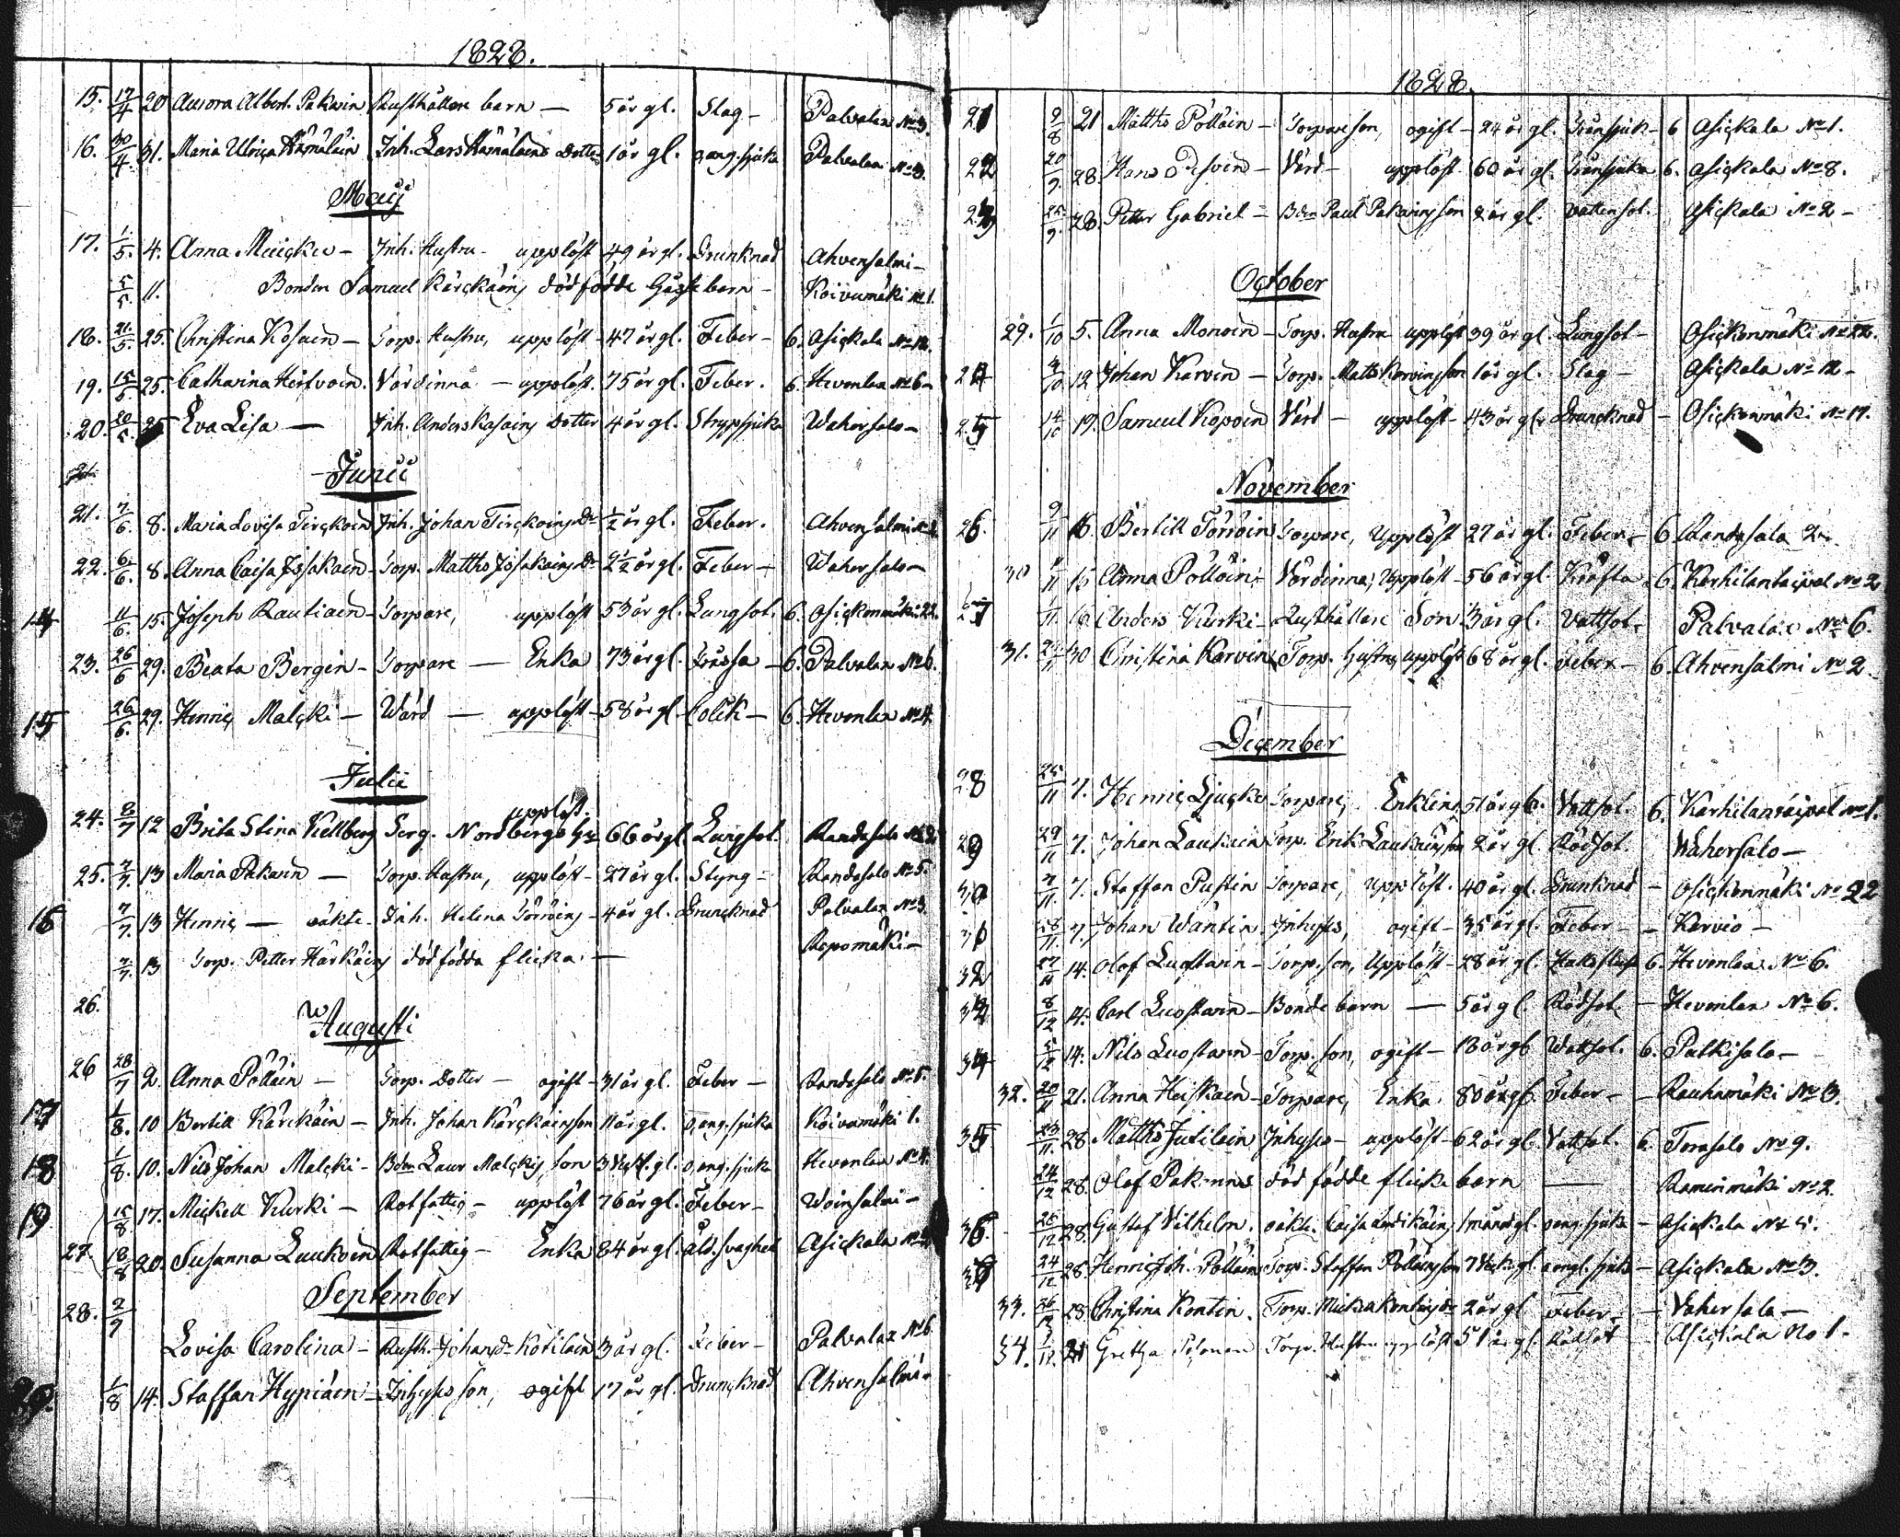 1828.
15. 17/4 20 Aurora Albert. Pakarin Rusthållare barn — 5 år gl. Slag - Palvalax No 3.
16. 30/4 31. Maria Ulrica Hämäläin Inh. Lars Hämäläins Dotter 1 år gl. oang. sjuka Palvalax No 3.
Maij
17. 1/5. 4. Anna Muicku - Inh. Hustru - upplöst 49 år gl. Drunknad Ahvensalmi -
5/5 11. Bonden Samuel Kärckäins dödfödde Gåsse barn - Koivumäki No 1.
18. 21/5. 25. Christina Kosuin - Torp. Hustru, upplöst - 47 år gl. Feber - 6. Asickala No 12.
19. 15/5 25. Catharina Hirvoin. Värdinna - upplöst. 75 år gl. Feber. 6 Hevonlax No 6 -
20. 20/5. 25 Eva Lisa — Inh. Anders Kasains Dotter 4 år gl. Strypsjuka Wahersalo -
21.
Junii
21. 7/6. 8. Maria Lovisa Tirckoin Inh. Johan Tirckoins Dr 1/2 år gl. Feber. Ahvensalmi No 2
22. 6/6. 8. Anna Caisa Issakain - Torp. Matths Issakains Dr 2 1/2 år gl. Feber - Wahersalo -
14 11/6. 15. Joseph Rautiain - Torpare, upplöst 53 år gl. Lungsot. 6. Osickonmäki 22.
23. 26/6 29. Beata Bergin - Torpare — Enka 73 år gl. Frossa - 6. Palvalax No 6.
15 26/6. 29. Henric Malcki - Wärd — upplöst - 58 år gl. Colik - 6. Hevonlax No 4.
Julii
24. 2/7 12 Brita Stina Kellberg Serg. Nordbergs Hu upplöst. 66 år gl. Lungsot. Randasalo No 2
25. 7/7. 13 Maria Pakarin — Torp. Hustru, upplöst - 27 år gl. Styng - Randasalo No 5.
16 7/7. 13 Henric — oäkta. Inh. Helena Törröins - 4 år gl. Druncknad Palvalax No 3.
7/7. 13 Torp. Petter Härkäins dödfödda flicka. — Repomäki -
26.
Augusti
26 28/7 2. Anna Pöllöin - Torp. Dotter - ogift - 31 år gl. Feber - Randasalo No 5.
17 1/8. 10 Bertill Kärckäin - Inh. Johan Kärckäins son 11 år gl. oang. sjuka Koivumäki 1.
18 1/8. 10. Nils Johan Malcki - Bdn Laur Malckis son 3 Veck gl. oang. sjuka Hevonlax No 4.
19 15/8 17. Mickell Kurki - Rotfattig - upplöst 76 år gl. Feber - Woinsalmi -
27 18/8 20. Susanna Laukoin Rotfattig - Enka 84 år gl. Åld. svaghet Asickala No
September
28. 2/9
Lovisa Carolina - Rusth. Johans Dr Kotilain 3 år gl. Feber - Palvalax No 6
20. 1/8 14. Staffan Hypiäin - Inhyses son, ogift 17 år gl. Druncknad Ahvensalmi -
1828.
21 9/8 21 Matths Pöllöin - Torpare son, ogift - 24 år gl. Tränsjuk - 6 Asickala No 1.
22 20/9. 28. Hans - Värd - upplöst 60 år gl. Tränsjuka 6. Asickala No 8.
23 25/9. 28. Petter Gabriel - Bdn Paul Pakarins son 2 år gl. Vattensot. Asickala No 2 -
October
29. 1/10 5. Anna Monoin - Torp. Hustru upplöst 39 år gl. Lungsot - Osickonmäki No 22.
24 4/10 12 Johan Karvin - Torp. Matts Karvins son 1 år gl. Slag - Asickala No 12 -
25 14/10 19. Samuel Kopoin Värd - upplöst - 43 år gl. Druncknad - Osickonmäki No 17.
November
26. 9/11 16. Bertill Törröin Torpare, Upplöst 27 år gl. Feber - 6 Randasala 2.
30 11 16 Anna Pöllöin - Värdinna, Upplöst - 56 år gl. Kräfta - 6. Karhilantaipal No 2
27 11. 16. Anders Kurki - Rusthållare Son 3 år gl. Vattsot - Palvalax No 6.
31. 11 30 Christina Karvin Torp. Hustru upplöst 68 år gl. Feber - 6. Ahvensalmi No 2
December
28 25/11 7. Henric Ljucko Torpare, Enkling 51 år gl. Vattsot. 6. Karhilantaipal No 1.
29 29/11 7. Johan Laukain Torp. Erik Laukains son 2 år gl. Rödsot. Wahersalo -
30 7/11. 7. Staffan Pustin Torpare, Upplöst. 40 år gl. Drunknad - Osickonmäki No 22
31 28/11. 7. Johan Wäntin. Inhyses, ogift - 35 år gl. Feber - - Kervio -
32 27/11 14. Olof Luostarin - Torp. son, Upplöst - 28 år gl. 6. Hevonlax No 6.
33 8/12 14. Carl Luostarin - Bonde barn — 5 år gl. Rödsot. - Hevonlax No 6.
34 5/12 14. Nils Luostarin - Torp. son, ogift - 18 år gl. Wattsot. 6. Putkisalo -
32. 20/11 21. Anna Heiskain - Torpare, Enka. 80 år gl. Feber - - Rauhamäki No 3.
35 23/11. 28 Matths Jutilain Inhyses - upplöst - 62 år gl. Vattsot. 6. Torasalo No 9.
24/12 28. Olof Pakarins död födde flicke barn — Ramunmäki No 2
36. 25/12 28. Gustaf Vilhelm. oäkta Caisa 1 månad gl. oang. sjuka - Asickala No 5.
37 24/12 28 Henric Joh. Pöllöin Torp. Staffan Pöllöins son 7 Veck gl. oang. sjuka - Asickala No 3.
33. 26/12 28 Christina Kontin. Torp. Mickel Kontins Dr 2 år gl. Feber - - Vahersalo -
34. 21 Gretha Torp. Hustru upplöst 51 år gl. Rödsot - Asickala No 1 -